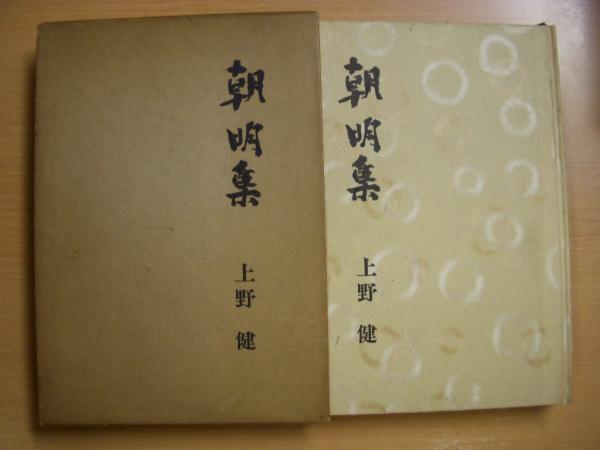 朝明集
上野健
朝明集
上野健